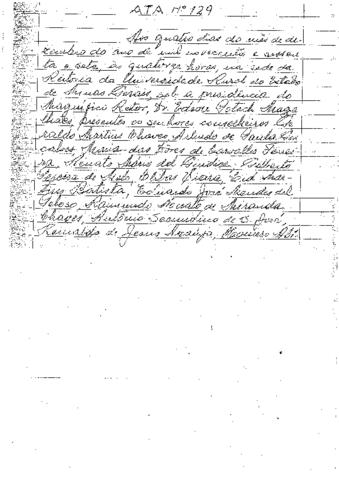 ATA Nº 129
Aos quatro dias do mês de de-
zembro do ano de mil novecentos e sessen-
ta e sete, às quatorze horas, na sede da
Reitoria da Universidade Rural do Estado
de Minas Gerais, sob a presidência do
Magnífico Reitor, Dr. Edson Potsch Maga-
lhães presentes os senhores conselheiros Ge-
raldo Martins Chaves Arlindo de Paula Gon-
çalves Maria das Dores de Carvalho Ferrei-
ra, Renato Mário del Giudice,
de Melo, Clibas Vieira,
Batista, Eduardo José Mendes del
Peloso Raimundo Nonato de Miranda
Chaves, Antônio Secundino de S. José,
Reinaldo de Jesus Araújo,